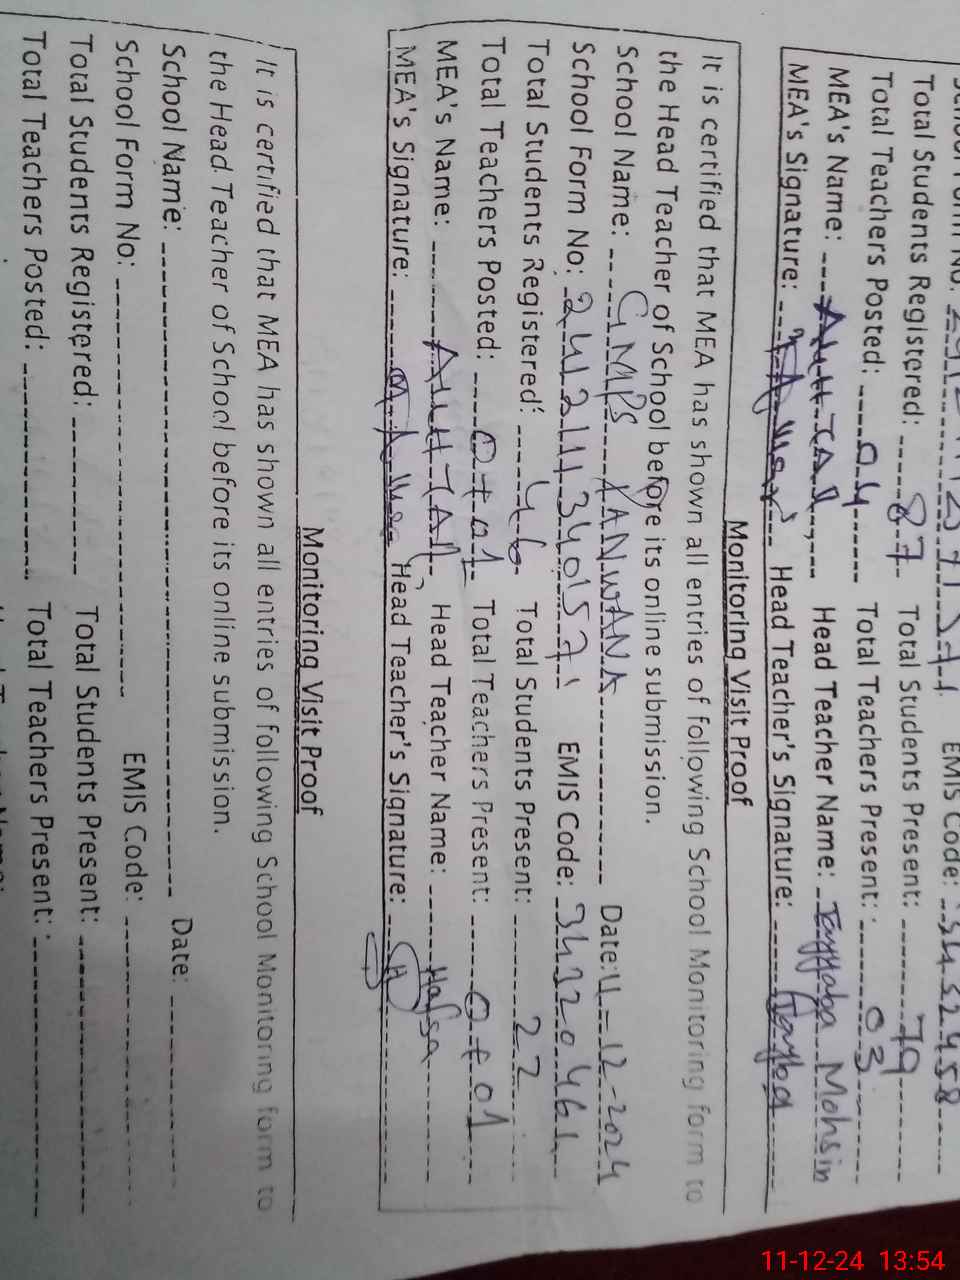 EMIS Code: 3432458
Total Students Registered: 87 Total Students Present: 79
Total Teachers Posted: 04 Total Teachers Present: 03
MEA's Name: Head Teacher Name: Tayyaba Mohsin
MEA's Signature: Head Teacher's Signature: Tayyba
Monitoring Visit Proof
It is certified that MEA has shown all entries of following School Monitoring form to
the Head Teacher of School before its online submission.
School Name: GMPS Date: 11-12-2024
School Form No: EMIS Code: 34320461
Total Students Registered: 46 Total Students Present: 22
Total Teachers Posted: 0+01 Total Teachers Present: 0+01
MEA's Name: Head Teacher Name: Hafsa
MEA's Signature: Head Teacher's Signature: H
Monitoring Visit Proof
It is certified that MEA has shown all entries of following School Monitoring form to
the Head Teacher of School before its online submission.
School Name: Date:
School Form No: EMIS Code:
Total Students Registered: Total Students Present:
Total Teachers Posted: Total Teachers Present:
11-12-24 13:54